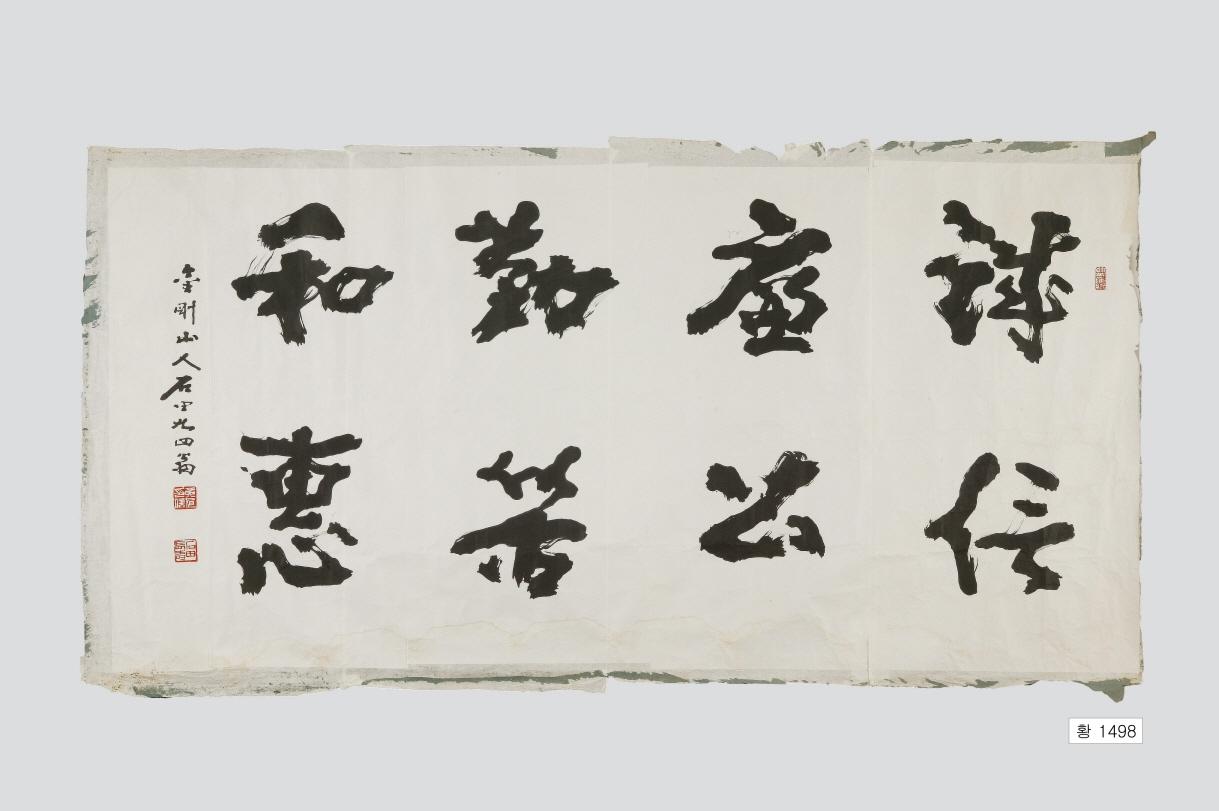 誠信
廉公
勤苦
和惠
金剛山人石田九四翁
황 1498